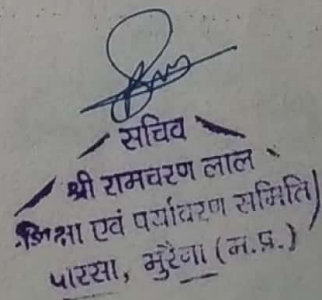 सचिव
श्री रामचरण लाल
शिक्षा एवं पर्यावरण समिति
पारसा, मुरैना (म.प्र.)